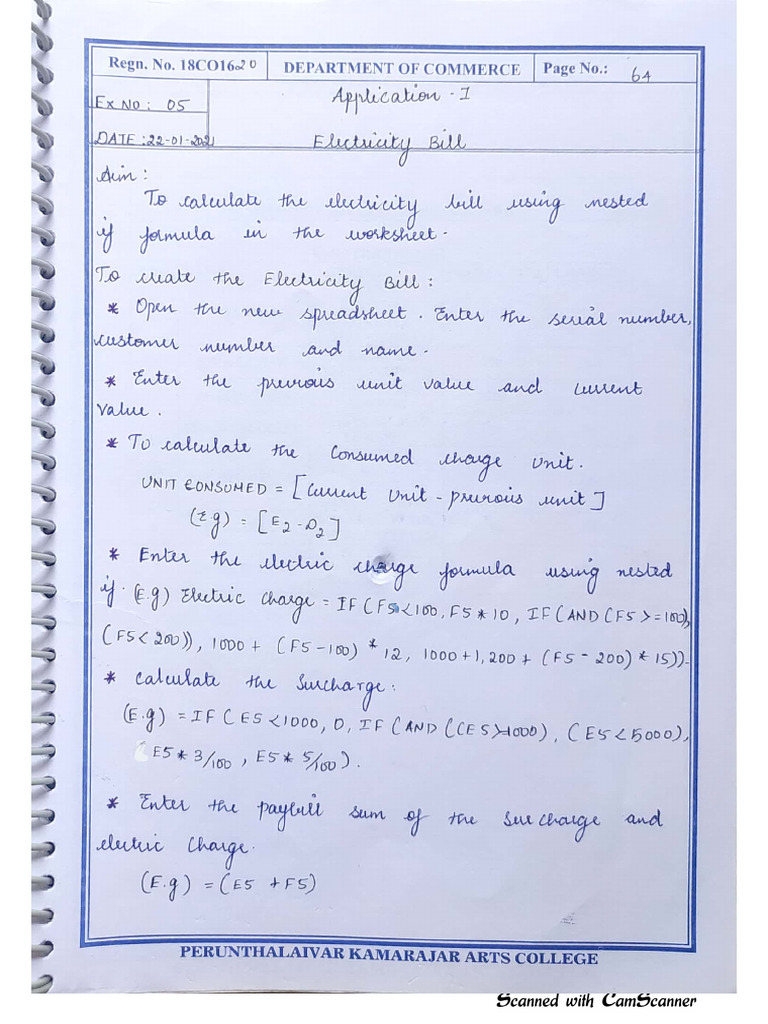 Regn. No. 18CO1620
DEPARTMENT OF COMMERCE
Page No.: 64
Ex No : 05
Application - I
DATE : 22-01-2021
Electricity Bill
Aim :
To calculate the electricity bill using nested
if formula in the worksheet.
To create the Electricity Bill :
* Open the new spreadsheet. Enter the serial number,
customer number and name.
* Enter the previous unit value and current
value.
* To calculate the Consumed charge unit.
UNIT CONSUMED = [Current Unit - previous unit]
(E.g) = [E2 - D2]
* Enter the electric charge formula using nested
if. (E.g) Electric Charge = IF(F5<100, F5*10, IF(AND(F5>=100),
(F5<200)), 1000+ (F5-100) * 12, 1000+1,200 + (F5-200) * 15)).
* Calculate the Surcharge :
(E.g) = IF(E5<1000, 0, IF(AND((E5>=1000), (E5<5000),
(E5*3/100, E5*5/100).
* Enter the paybill sum of the surcharge and
electric charge.
(E.g) = (E5 +F5)
PERUNTHALAIVAR KAMARAJAR ARTS COLLEGE
Scanned with CamScanner